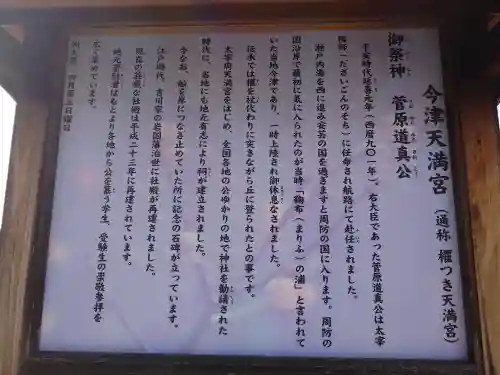 今津天満宮 (通称 櫂つき天満宮)
御祭神 菅原道真公
平安時代延喜元年(西暦九〇一年)、右大臣であった菅原道真公は太宰
権帥(だざいごんのそち)に任命され航路にて赴任されました。
瀬戸内海を西に進み安芸の国を過ぎますと周防の国に入ります。周防の
国沿岸で最初に気に入られたのが当時「鞠布(まりふ)の浦」と言われて
いた当地今津であり、一時上陸され御休息なされました。
伝承では櫂を杖代わりに突きながら丘に登られたとの事です。
太宰府天満宮をはじめ、全国各地の公ゆかりの地で神社を勧請された
時代に、当地にも地元有志により祠が建立されました。
今なお、船を岸につなぎ止めていた所に記念の石碑が立っています。
江戸時代、吉川家の岩国藩治世に社殿が再建されました。
現在の荘厳な社殿は平成二十三年に再建されています。
地元苔別府はもとより各地から公を慕う学生、受験生の崇敬参拝を
広く集めています。
例大祭 四月第三日曜日